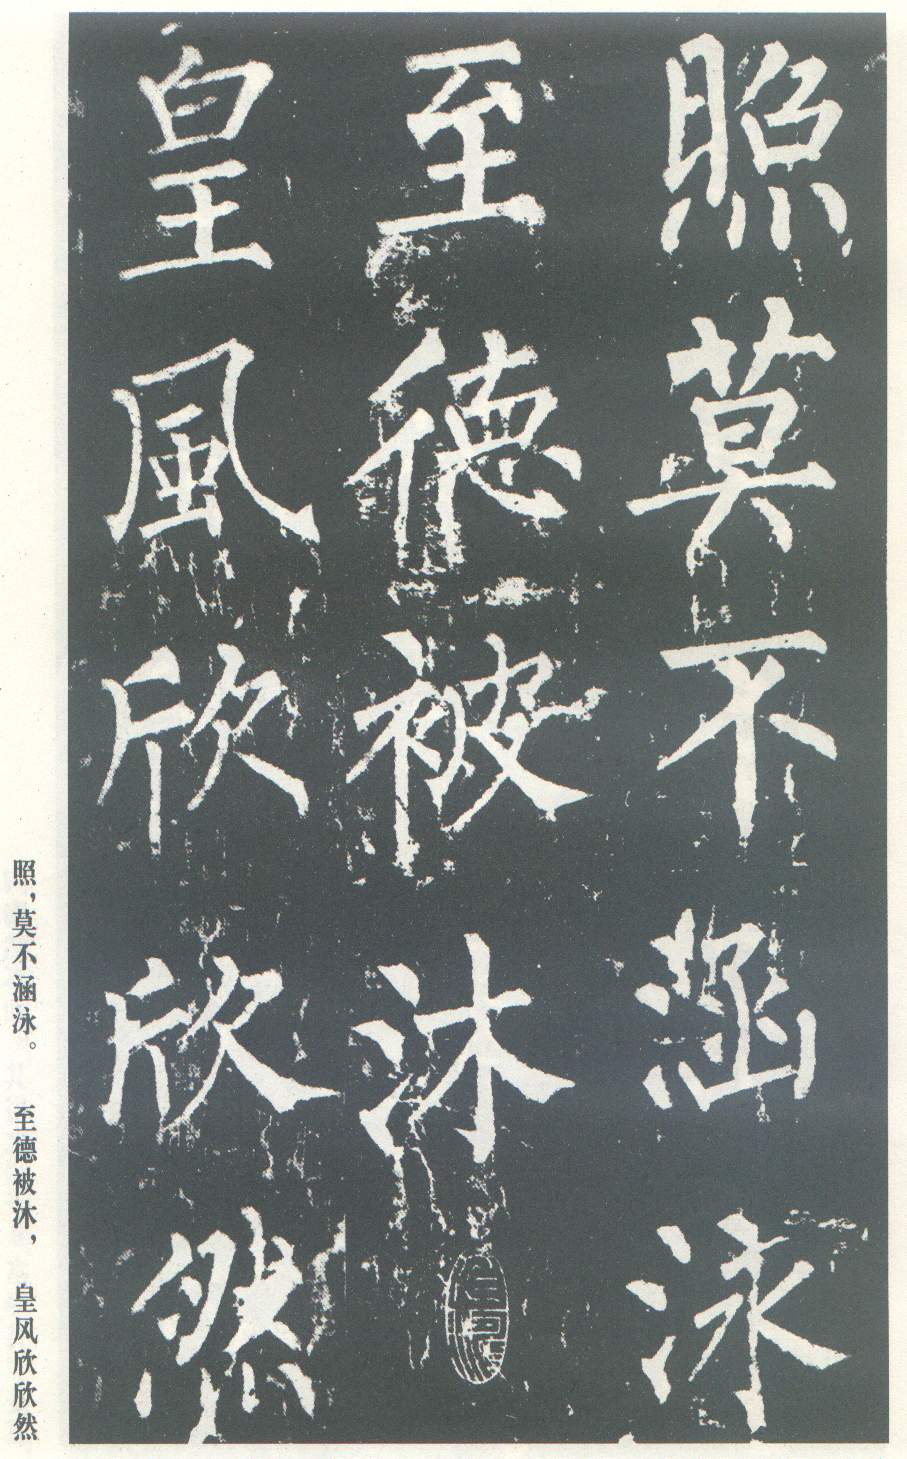 照莫不涵泳
至德被沐
皇風欣欣然
照，莫不涵泳。 至德被沐， 皇风欣欣然